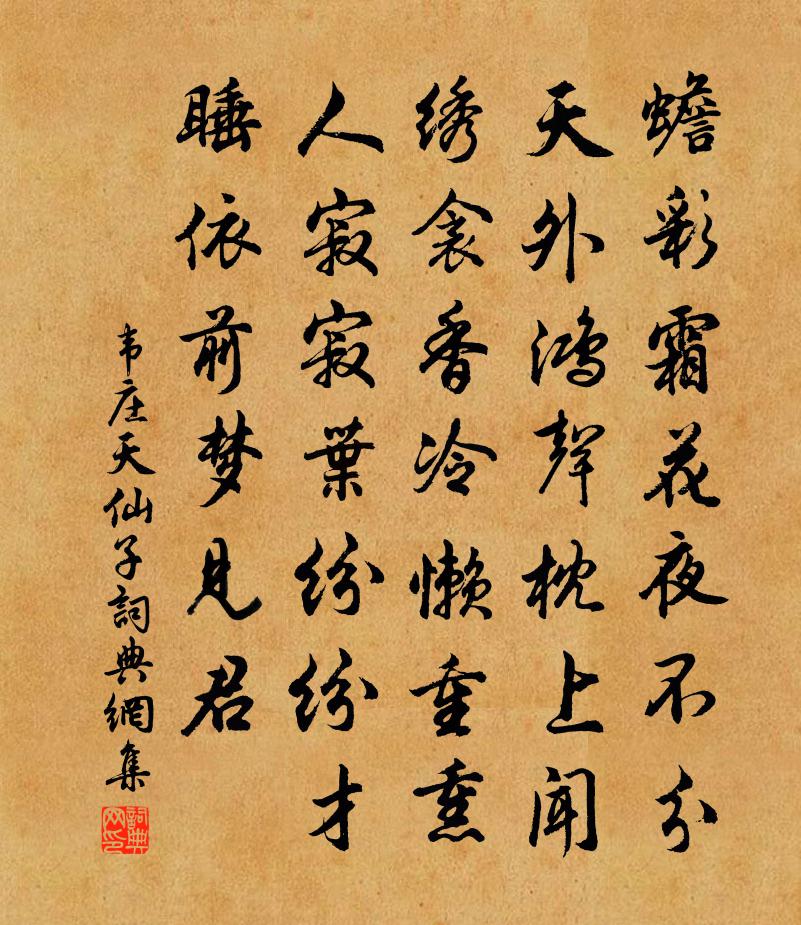 蟾彩霜花夜不分
天外鸿聲枕上闻
绣衾香冷懒重熏
人寂寂葉纷纷才
睡依前梦见君
韦庄天仙子詞典網集
詞典
网印